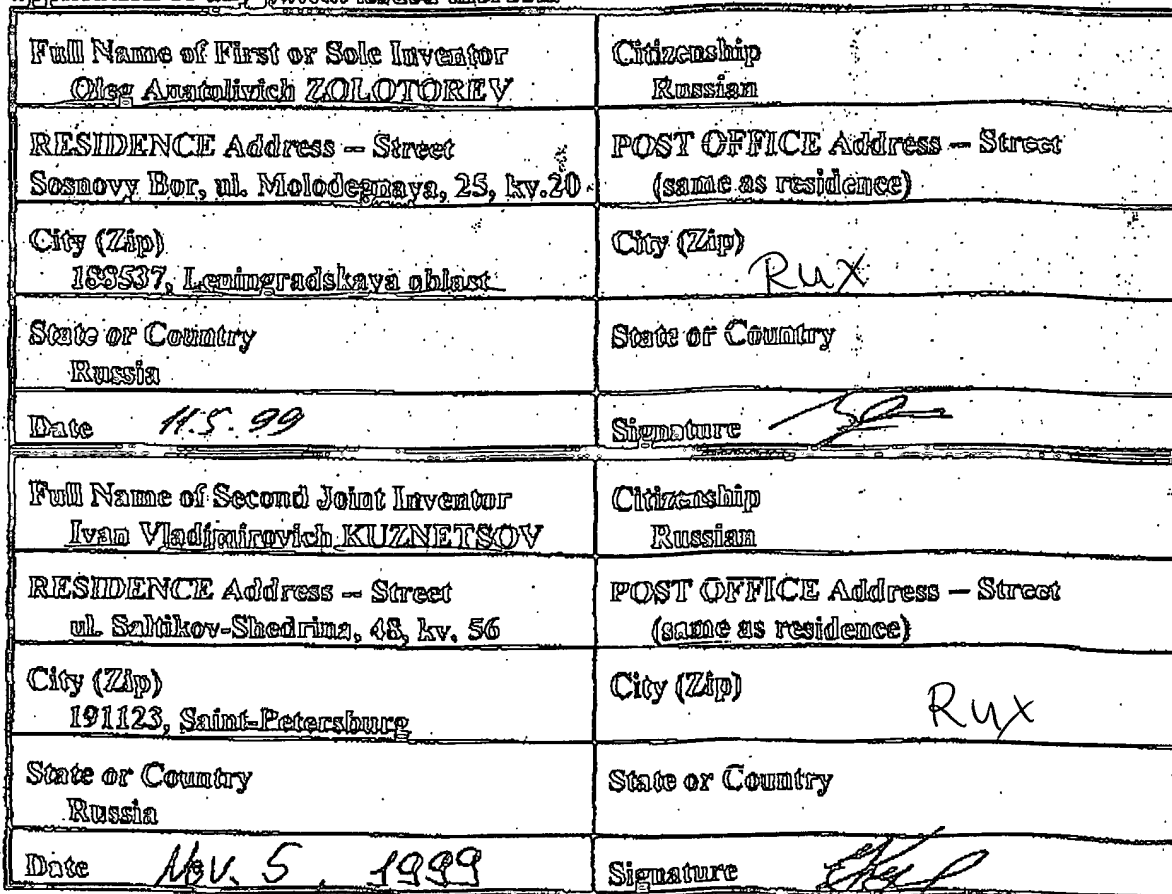 Full Name of First or Sole Inventor
Oleg Anatolivich ZOLOTOREV
Citizenship
Russian
RESIDENCE Address – Street
Sosnovy Bor, ul. Molodegnaya, 25, kv.20
POST OFFICE Address – Street
(same as residence)
City (Zip)
188537, Leningradskaya oblast
City (Zip)
RUX
State or Country
Russia
State or Country
Date 11.5.99
Signature
Full Name of Second Joint Inventor
Ivan Vladimirovich KUZNETSOV
Citizenship
Russian
RESIDENCE Address – Street
ul. Saltikov-Shedrina, 48, kv. 56
POST OFFICE Address – Street
(same as residence)
City (Zip)
191123, Saint-Petersburg
City (Zip)
RUX
State or Country
Russia
State or Country
Date Nov. 5, 1999
Signature